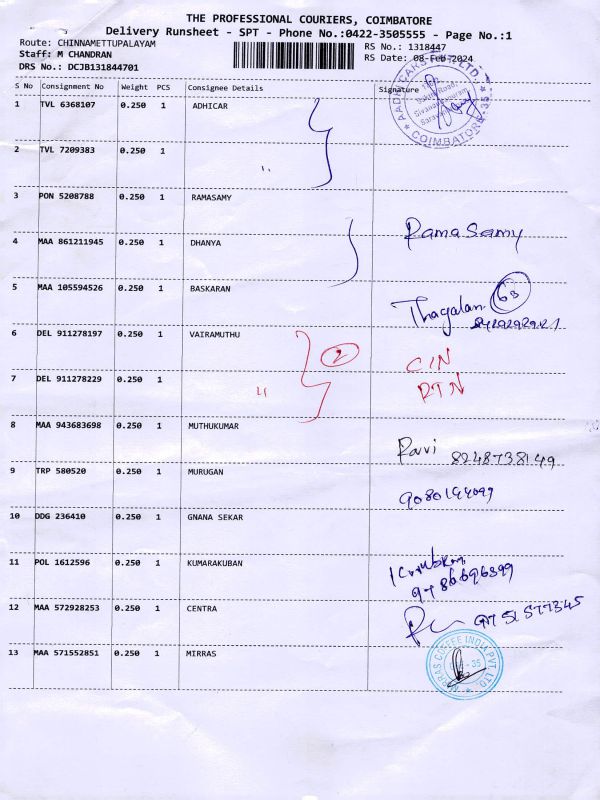 THE PROFESSIONAL COURIERS, COIMBATORE
Delivery Runsheet - SPT - Phone No.:0422-3505555 - Page No.:1
Route: CHINNAMETTUPALAYAM
Staff: M CHANDRAN
DRS No.: DCJB131844701
RS No.: 1318447
RS Date: 08-Feb-2024
S No Consignment No Weight PCS Consignee Details Signature
1 TVL 6368107 0.250 1 ADHICAR
COIMBATORE 35
2 TVL 7209383 0.250 1
3 PON 5208788 0.250 1 RAMASAMY
Rama Samy
4 MAA 861211945 0.250 1 DHANYA
5 MAA 105594526 0.250 1 BASKARAN
Thagalan
6 DEL 911278197 0.250 1 VAIRAMUTHU
2 C/N
7 DEL 911278229 0.250 1 RTN
8 MAA 943683698 0.250 1 MUTHUKUMAR
Ravi 8248738149
9 TRP 580520 0.250 1 MURUGAN
9080144099
10 DDG 236410 0.250 1 GNANA SEKAR
11 POL 1612596 0.250 1 KUMARAKUBAN
9786696399
12 MAA 572928253 0.250 1 CENTRA
13 MAA 571552851 0.250 1 MIRRAS
MIRRAS COFFEE INDIA PVT. LTD.